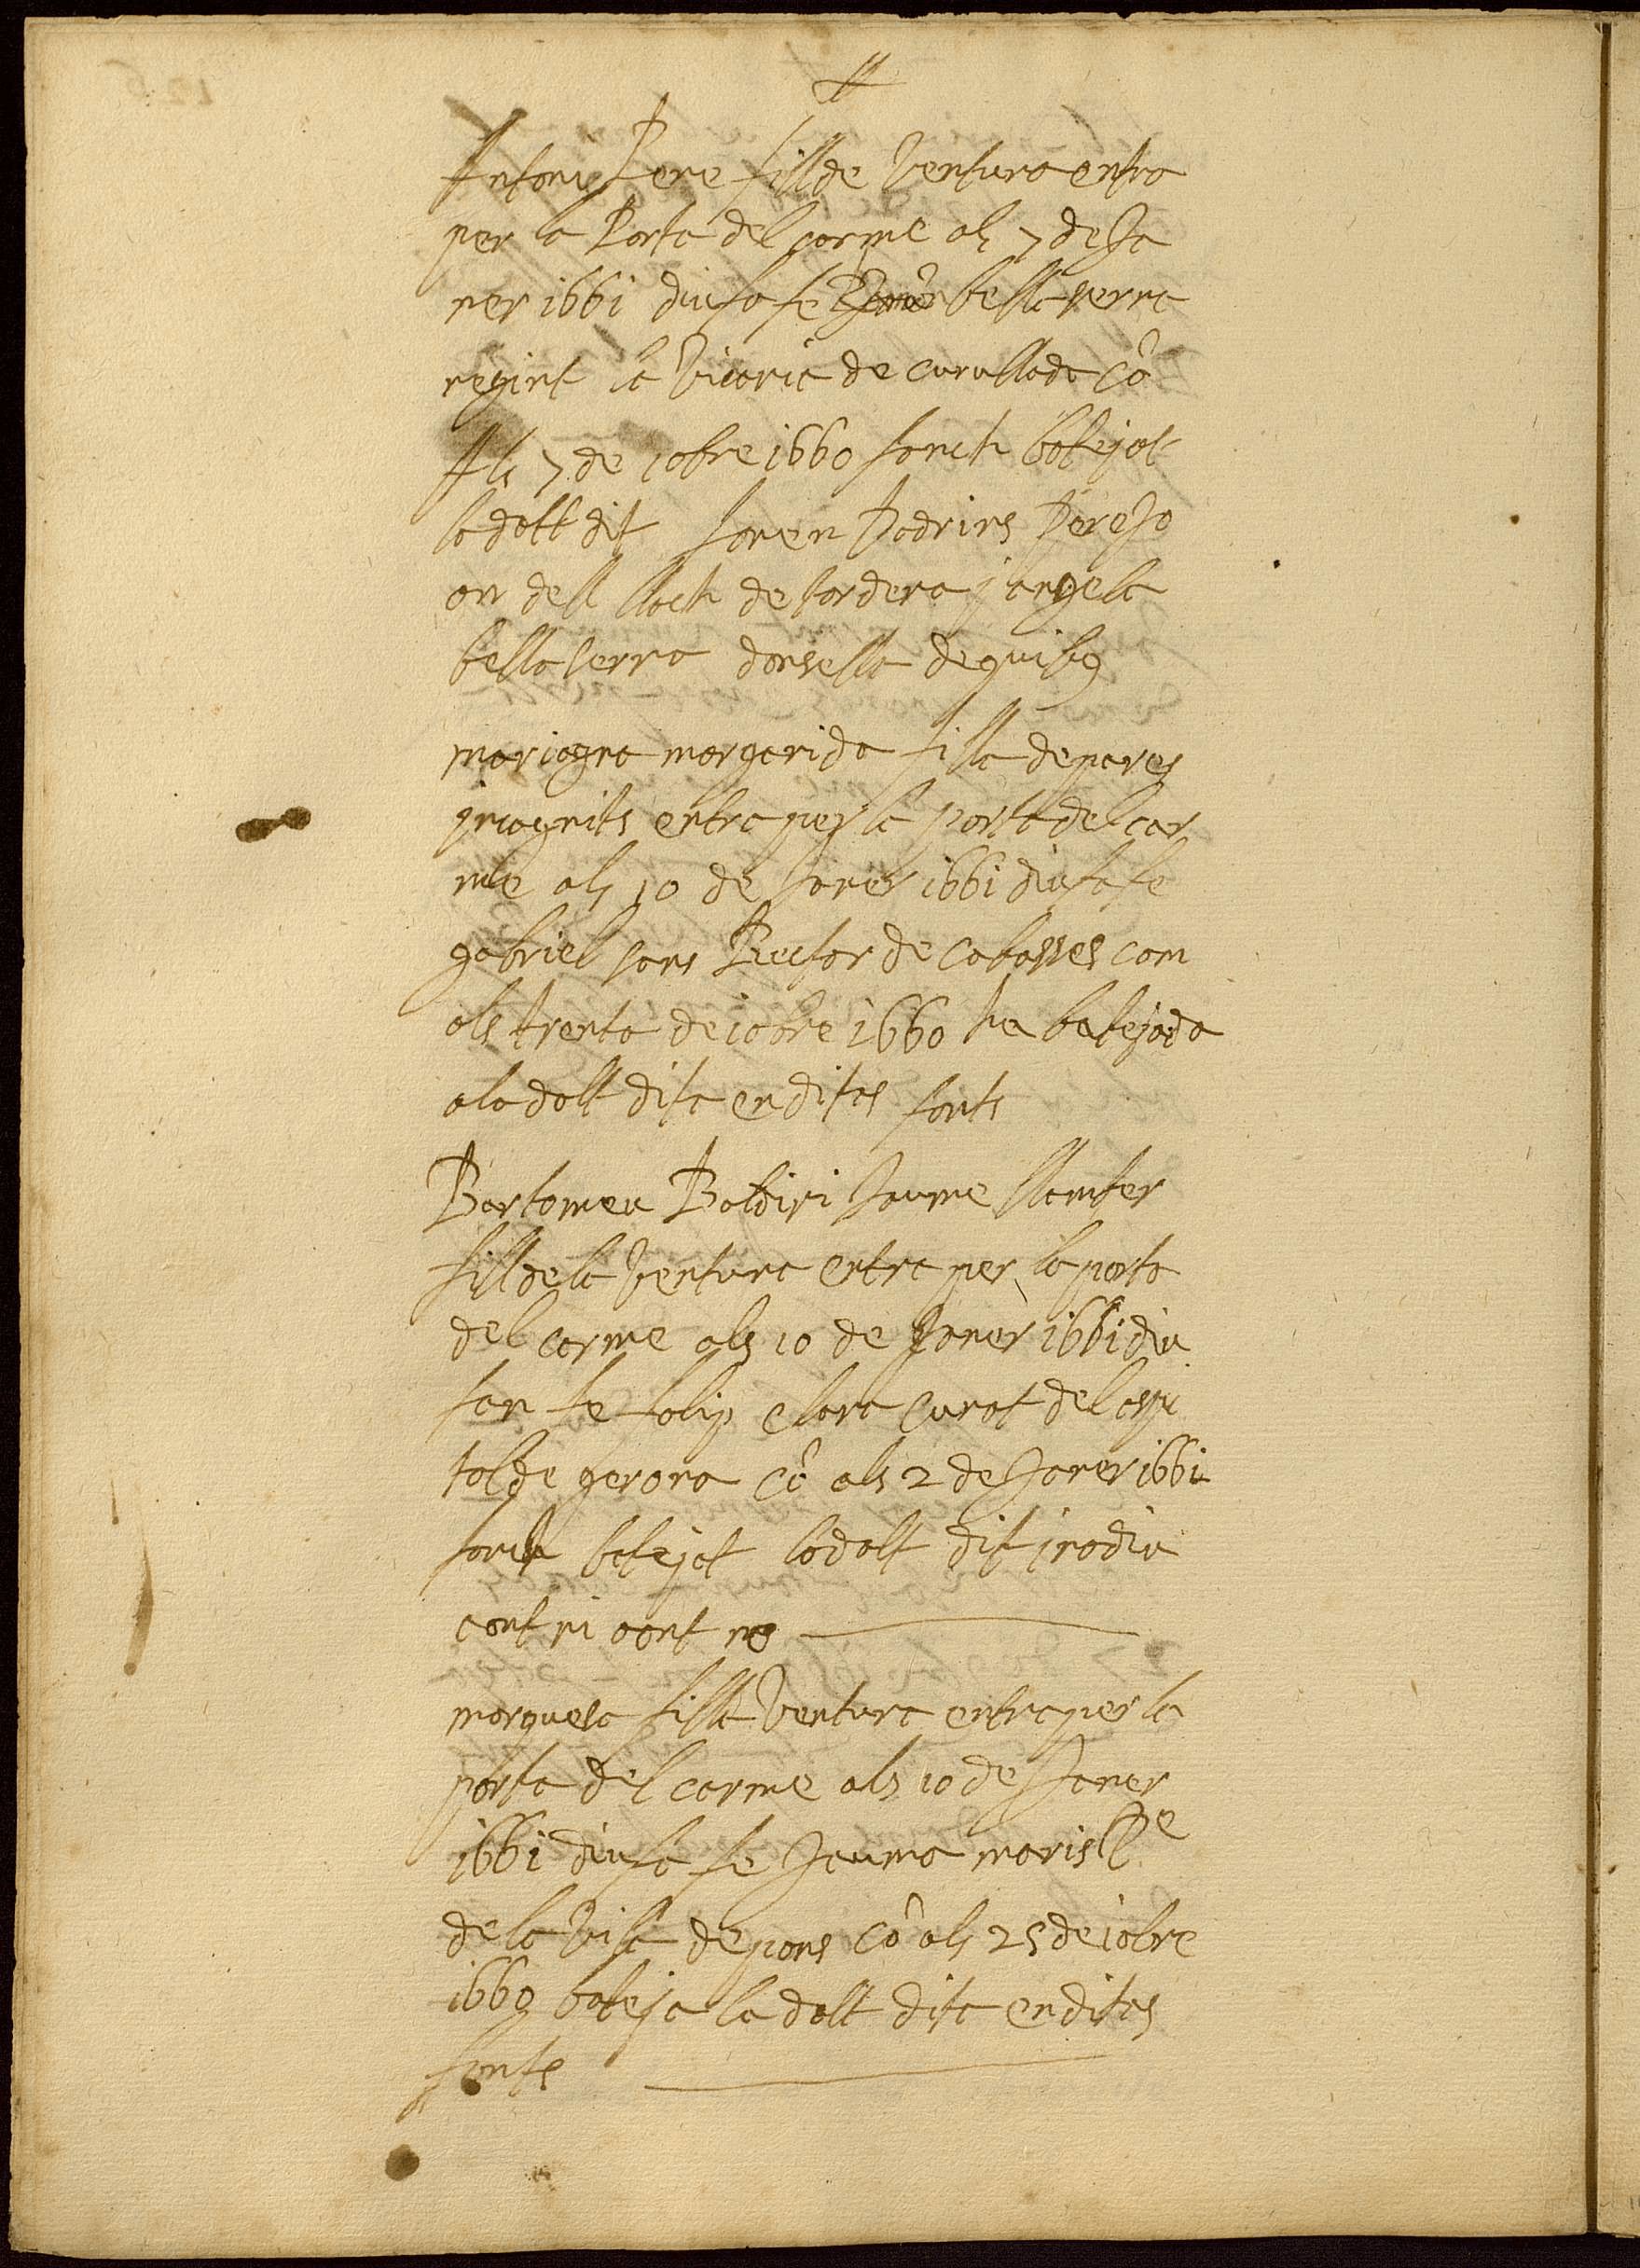 Antoni Pere fill de Ventura entra
per la Porta del carme als 7 de Ja
ner 1661 diu sa fe bellaserra
regint la Vicaria de curullada Cô
Als 7 de 10bre 1660 fonch batejat
lo dalt dit foren Padrins Pere Jo
an dell lloch de sardera j angela
bellaserra donsella de quibq
mariagna margarida filla de pares
jncognits entra per la porta del car
me als 10 de Janer 1661 diu sa fe
gabriel sans Rector de cabasses com
als trenta de 10bre 1660 ha batejada
a la dalt dita en ditas fonts
Bartomeu Baldiri Jaume
fill de la Ventura entra per la porta
del carme als 10 de Janer 1661 diu
san fe clara curat del aspi
tal de gerona Cô als 2 de Janer 1661
fonch batejat lo dalt dit j no diu
cont ni cont no
marquesa filla Ventura entra per la
porta del carme als 10 de Janer
1661 diu sa fe Jauma maris Pe
de la Vila de pons Cô als 25 de 10bre
1660 bateja la dalt dita en ditas
fonts